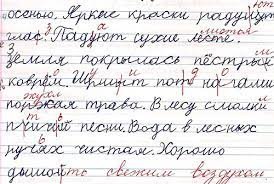 осенью. Яркие краски радуют
глас. Падуют сухие листе
земля покрылась пёстрым
ковром. Шурнит под нагами
поржая трава. В лесу смолкли
птичий песни. Вода в лесных
ручаях чистая. Хорошо
дышой то свежим воздухом